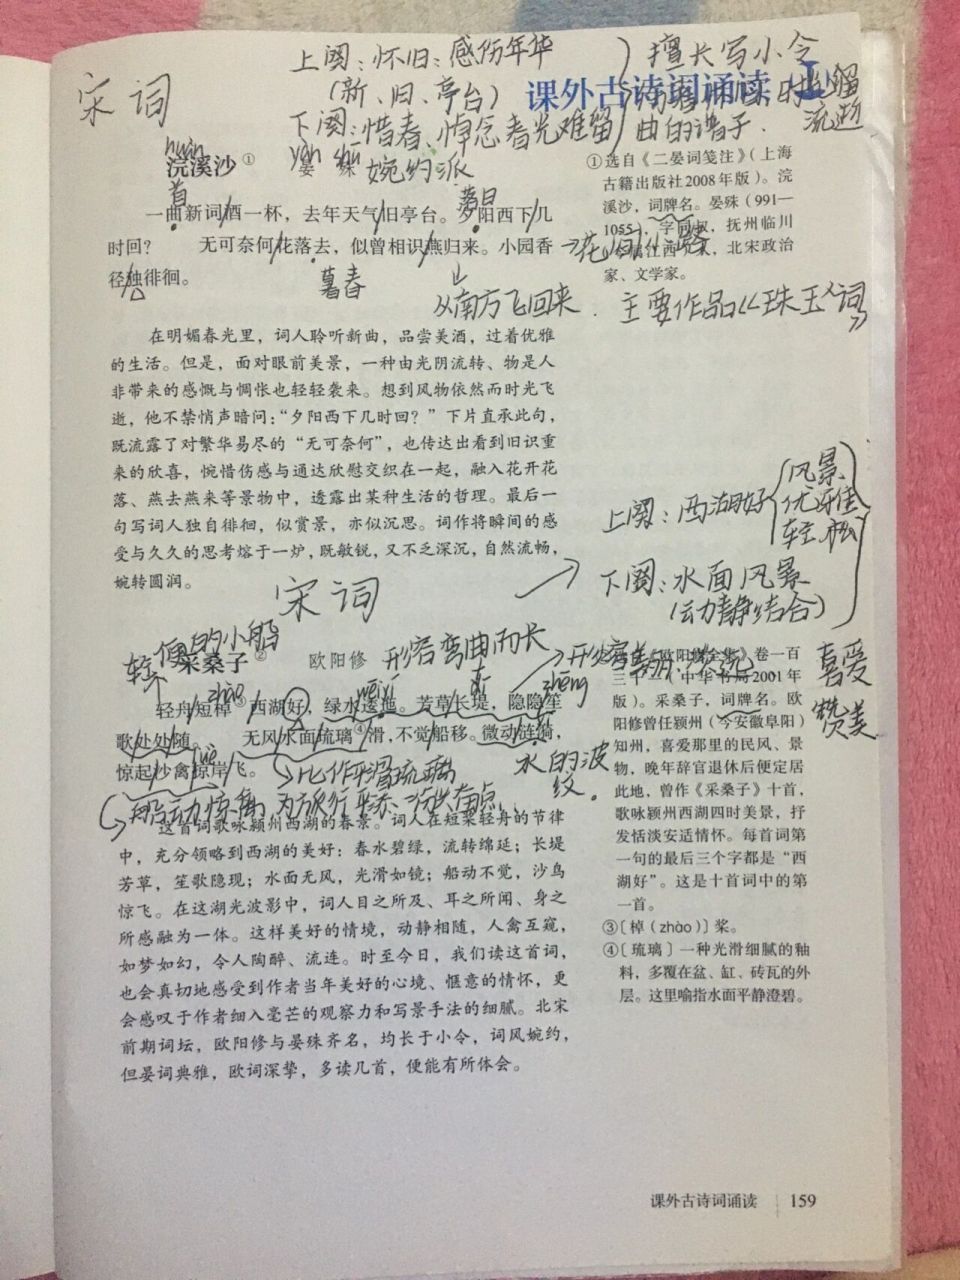 宋词
上阕：怀旧：感伤年华
（新、旧、亭台）
下阕：惜春、悼念春光难留
婉约派
擅长写小令
流逝
曲的谱子.
课外古诗词诵读
huàn
浣溪沙①
晏 殊
yàn shū
首
落日
一曲新词酒一杯，去年天气旧亭台。夕阳西下几
时回？ 无可奈何花落去，似曾相识燕归来。小园香
径独徘徊。
暮春
从南方飞回来.
主要作品《珠玉词》
在明媚春光里，词人聆听新曲，品尝美酒，过着优雅
的生活。但是，面对眼前美景，一种由光阴流转、物是人
非带来的感慨与惆怅也轻轻袭来。想到风物依然而时光飞
逝，他不禁悄声暗问：“夕阳西下几时回？”下片直承此句，
既流露了对繁华易尽的“无可奈何”，也传达出看到旧识重
来的欣喜，惋惜伤感与通达欣慰交织在一起，融入花开花
落、燕去燕来等景物中，透露出某种生活的哲理。最后一
句写词人独自徘徊，似赏景，亦似沉思。词作将瞬间的感
受与久久的思考熔于一炉，既敏锐，又不乏深沉，自然流畅，
婉转圆润。
①选自《二晏词笺注》（上海
古籍出版社2008年版）。浣
溪沙，词牌名。晏殊（991—
1055），字同叔，抚州临川
（今属江西）人，北宋政治
家、文学家。
上阕：西湖好
风景
优雅
轻松
下阕：水面风景
（动静结合）
喜爱
赞美
宋词
轻便的小船
采桑子②
欧阳修
形容弯曲而长
zhào
wēi yí
dī
shēng
轻舟短棹③西湖好，绿水逶迤。芳草长堤，隐隐笙
歌处处随。 无风水面琉璃④滑，不觉船移。微动涟漪，
惊起沙禽掠岸飞。
lüè
比作平滑琉璃
水的波
纹.
这首词歌咏颍州西湖的春景。词人在短桨轻舟的节律
中，充分领略到西湖的美好：春水碧绿，流转绵延；长堤
芳草，笙歌隐现；水面无风，光滑如镜；船动不觉，沙鸟
惊飞。在这湖光波影中，词人目之所及、耳之所闻、身之
所感融为一体。这样美好的情境，动静相随，人禽互窥，
如梦如幻，令人陶醉、流连。时至今日，我们读这首词，
也会真切地感受到作者当年美好的心境、惬意的情怀，更
会感叹于作者细入毫芒的观察力和写景手法的细腻。北宋
前期词坛，欧阳修与晏殊齐名，均长于小令，词风婉约，
但晏词典雅，欧词深挚，多读几首，便能有所体会。
《欧阳修全集》卷一百
三十一（中华书局2001年
版）。采桑子，词牌名。欧
阳修曾任颍州（今安徽阜阳）
知州，喜爱那里的民风、景
物，晚年辞官退休后便定居
此地，曾作《采桑子》十首，
歌咏颍州西湖四时美景，抒
发恬淡安适情怀。每首词第
一句的最后三个字都是“西
湖好”。这是十首词中的第
一首。
③〔棹（zhào）〕桨。
④〔琉璃〕一种光滑细腻的釉
料，多覆在盆、缸、砖瓦的外
层。这里喻指水面平静澄碧。
课外古诗词诵读 159